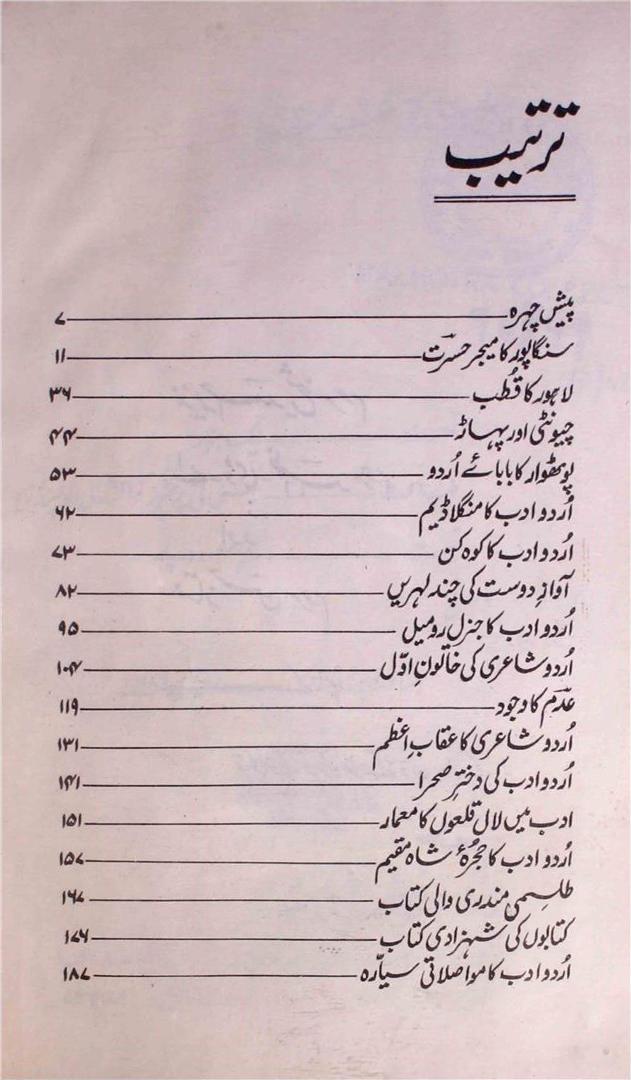 ترتیب
پیش چہرہ ۷
سنگاپور کا میجر حسرتؔ ۱۱
لاہور کا قُطب ۳۶
چیونٹی اور پہاڑ ۴۴
پوٹھوار کا بابائے اُردو ۵۳
اُردو ادب کا منگلا ڈیم ۶۲
اُردو ادب کا کوہ کن ۷۳
آوازِ دوست کی چند لہریں ۸۲
اُردو ادب کا جنرل رومیل ۹۵
اُردو شاعری کی خاتونِ اوّل ۱۰۴
عدمؔ کا وجود ۱۱۹
اُردو شاعری کا عقابِ اعظم ۱۳۱
اُردو ادب کی دخترِ صحرا ۱۴۱
ادب میں لال قلعوں کا معمار ۱۵۱
اُردو ادب کا حجرۂ شاہ مقیم ۱۵۷
طلسمی مندری والی کتاب ۱۶۷
کتابوں کی شہزادی کتاب ۱۷۶
اُردو ادب کا مواصلاتی سیّارہ ۱۸۷